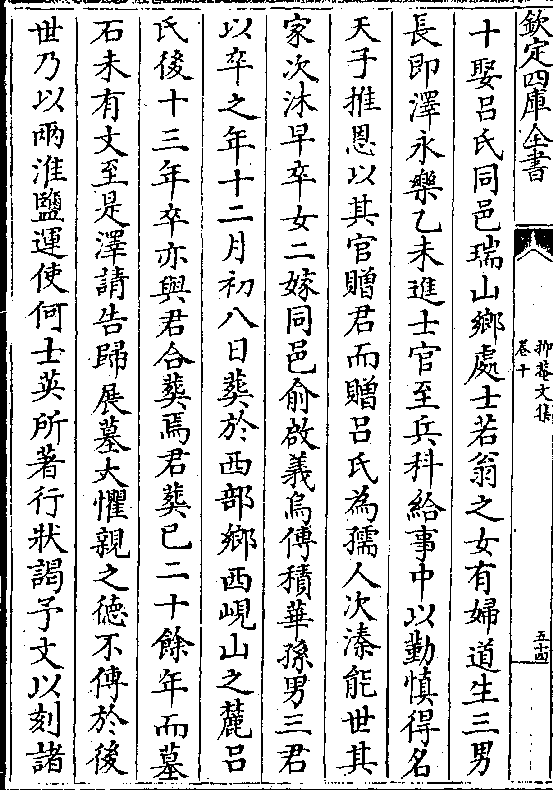 欽定四庫全書
抑菴文集
卷十
五十四
十娶吕氏同邑瑞山鄉處士若翁之女有婦道生三男
長即澤永樂乙未進士官至兵科給事中以勤慎得名
天子推恩以其官贈君而贈吕氏為孺人次溱能世其
家次沐早卒女二嫁同邑俞啟義烏傅積華孫男三君
以卒之年十二月初八日葬於西部鄉西峴山之麓吕
氏後十三年卒亦與君合葬焉君葬已二十餘年而墓
石未有文至是澤請告歸展墓大懼親之徳不傳於後
世乃以兩淮鹽運使何士英所著行狀謁予文以刻諸